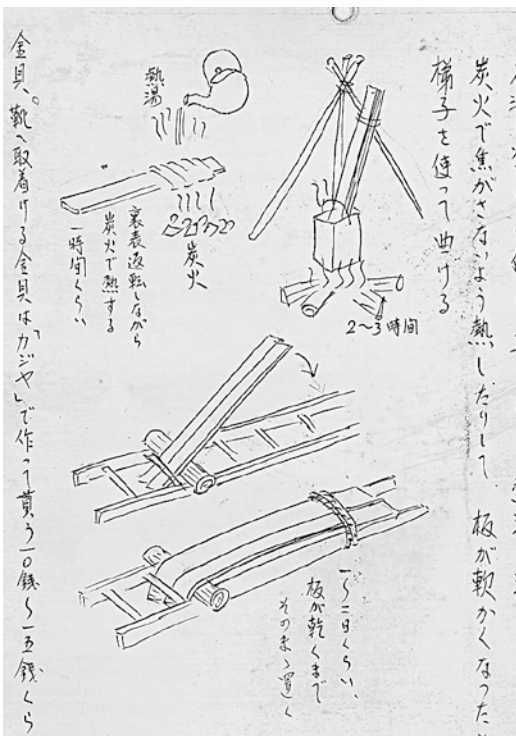 炭火で焦がさないよう熱したりして 板が軟かくなった
梯子を使って曲げる
2〜3時間
熱湯
炭火
裏表返転しながら
炭火で熱する
一時間くらい
一〜二日くらい、
板が乾くまで
そのまゝ置く
金具。靴へ取着ける金具は「カジヤ」で作って貰う一〇銭〜一五銭くら